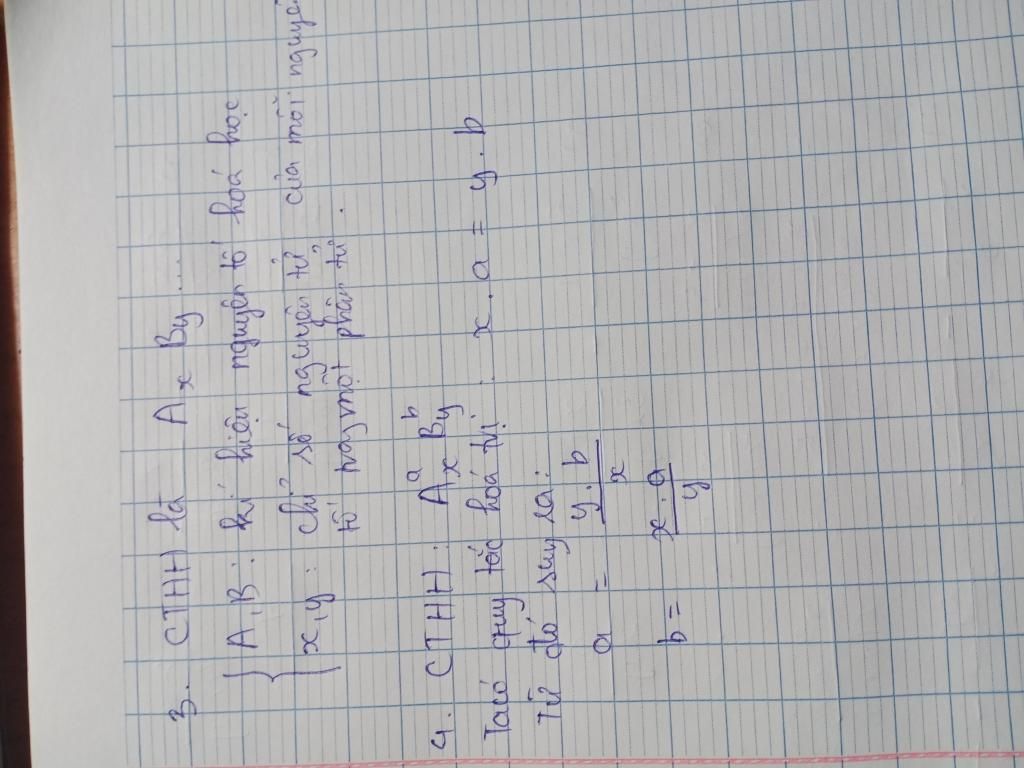 3. CTHH là AxBy....
A,B: kí hiệu nguyên tố hoá học
x,y: chỉ số nguyên tử của mỗi nguyê
tố một phân tử.
4. CTHH: AxBy
a b
Ta có quy tắc hoá trị: x.a = y.b
Từ đó suy ra:
a = y.b/x
b = x.a/y